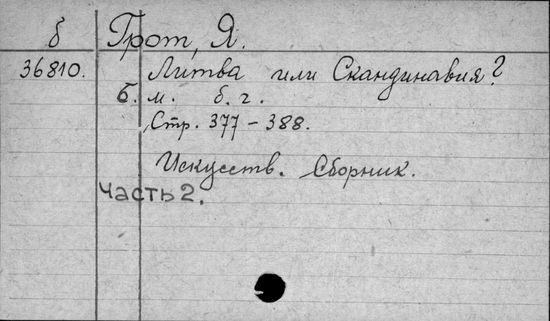 б Грот, Я.
36810. Литва или Скандинавия?
б. м. б. г.
Стр. 377 - 388.
Искусств. Сборник.
Часть 2.